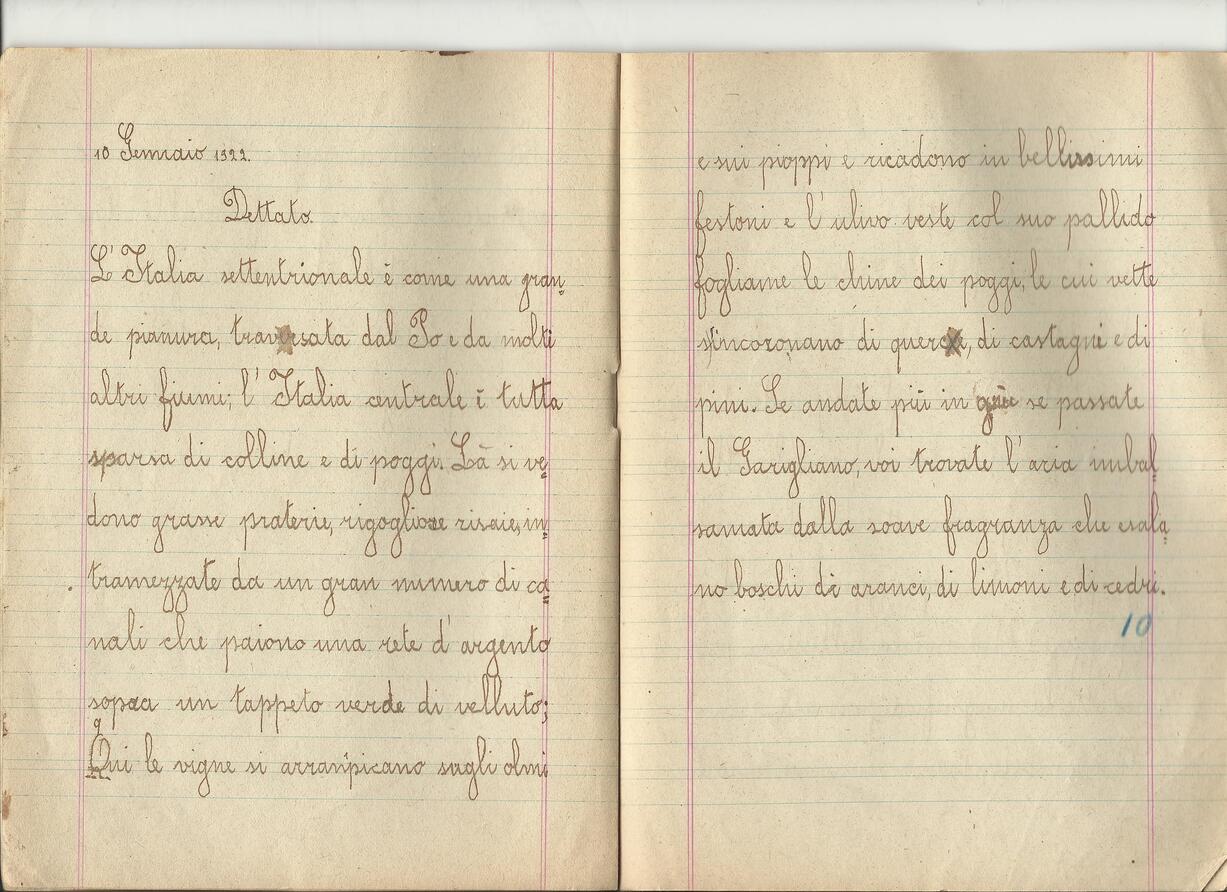 10 Gennaio 1922.
Dettato.
L'Italia settentrionale è come una gran=
de pianura, traversata dal Po e da molti
altri fiumi; l'Italia centrale è tutta
sparsa di colline e di poggi. Là si ve=
dono grasse praterie, rigogliose risaie, in=
tramezzate da un gran numero di ca=
nali che paiono una rete d'argento
sopra un tappeto verde di velluto;
q
Qui le vigne si arrampicano sugli olmi
e sui pioppi e ricadono in bellissimi
festoni e l'ulivo veste col suo pallido
fogliame le chine dei poggi, le cui vette
s'incoronano di querce, di castagni e di
pini. Se andate più in giù se passate
il Garigliano, voi trovate l'aria imbal=
samata dalla soave fragranza che esala=
no boschi di aranci, di limoni e di cedri.
10